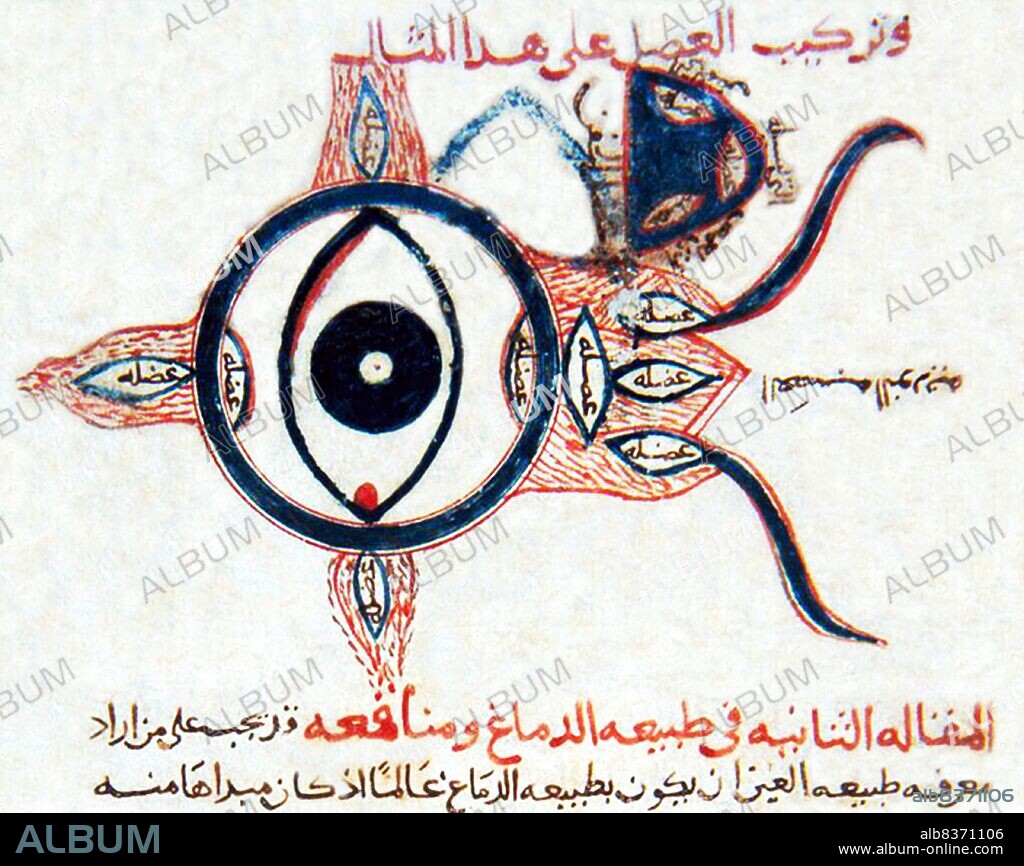 وتركيب العضل على هذا المثال
عضله
عضله
عضله
عضله
عضله
عضله
عضله
عضله
عضله
عضله
المقاله الثانيه في طبيعه الدماغ ومنافعه قد يجب على من اراد
معرفه طبيعه العين ان يكون بطبيعه الدماغ عالمًا اذ كان مبداها منه
ALBUM
alb8371106
ALBUM
alb8371106
www.album-online.com